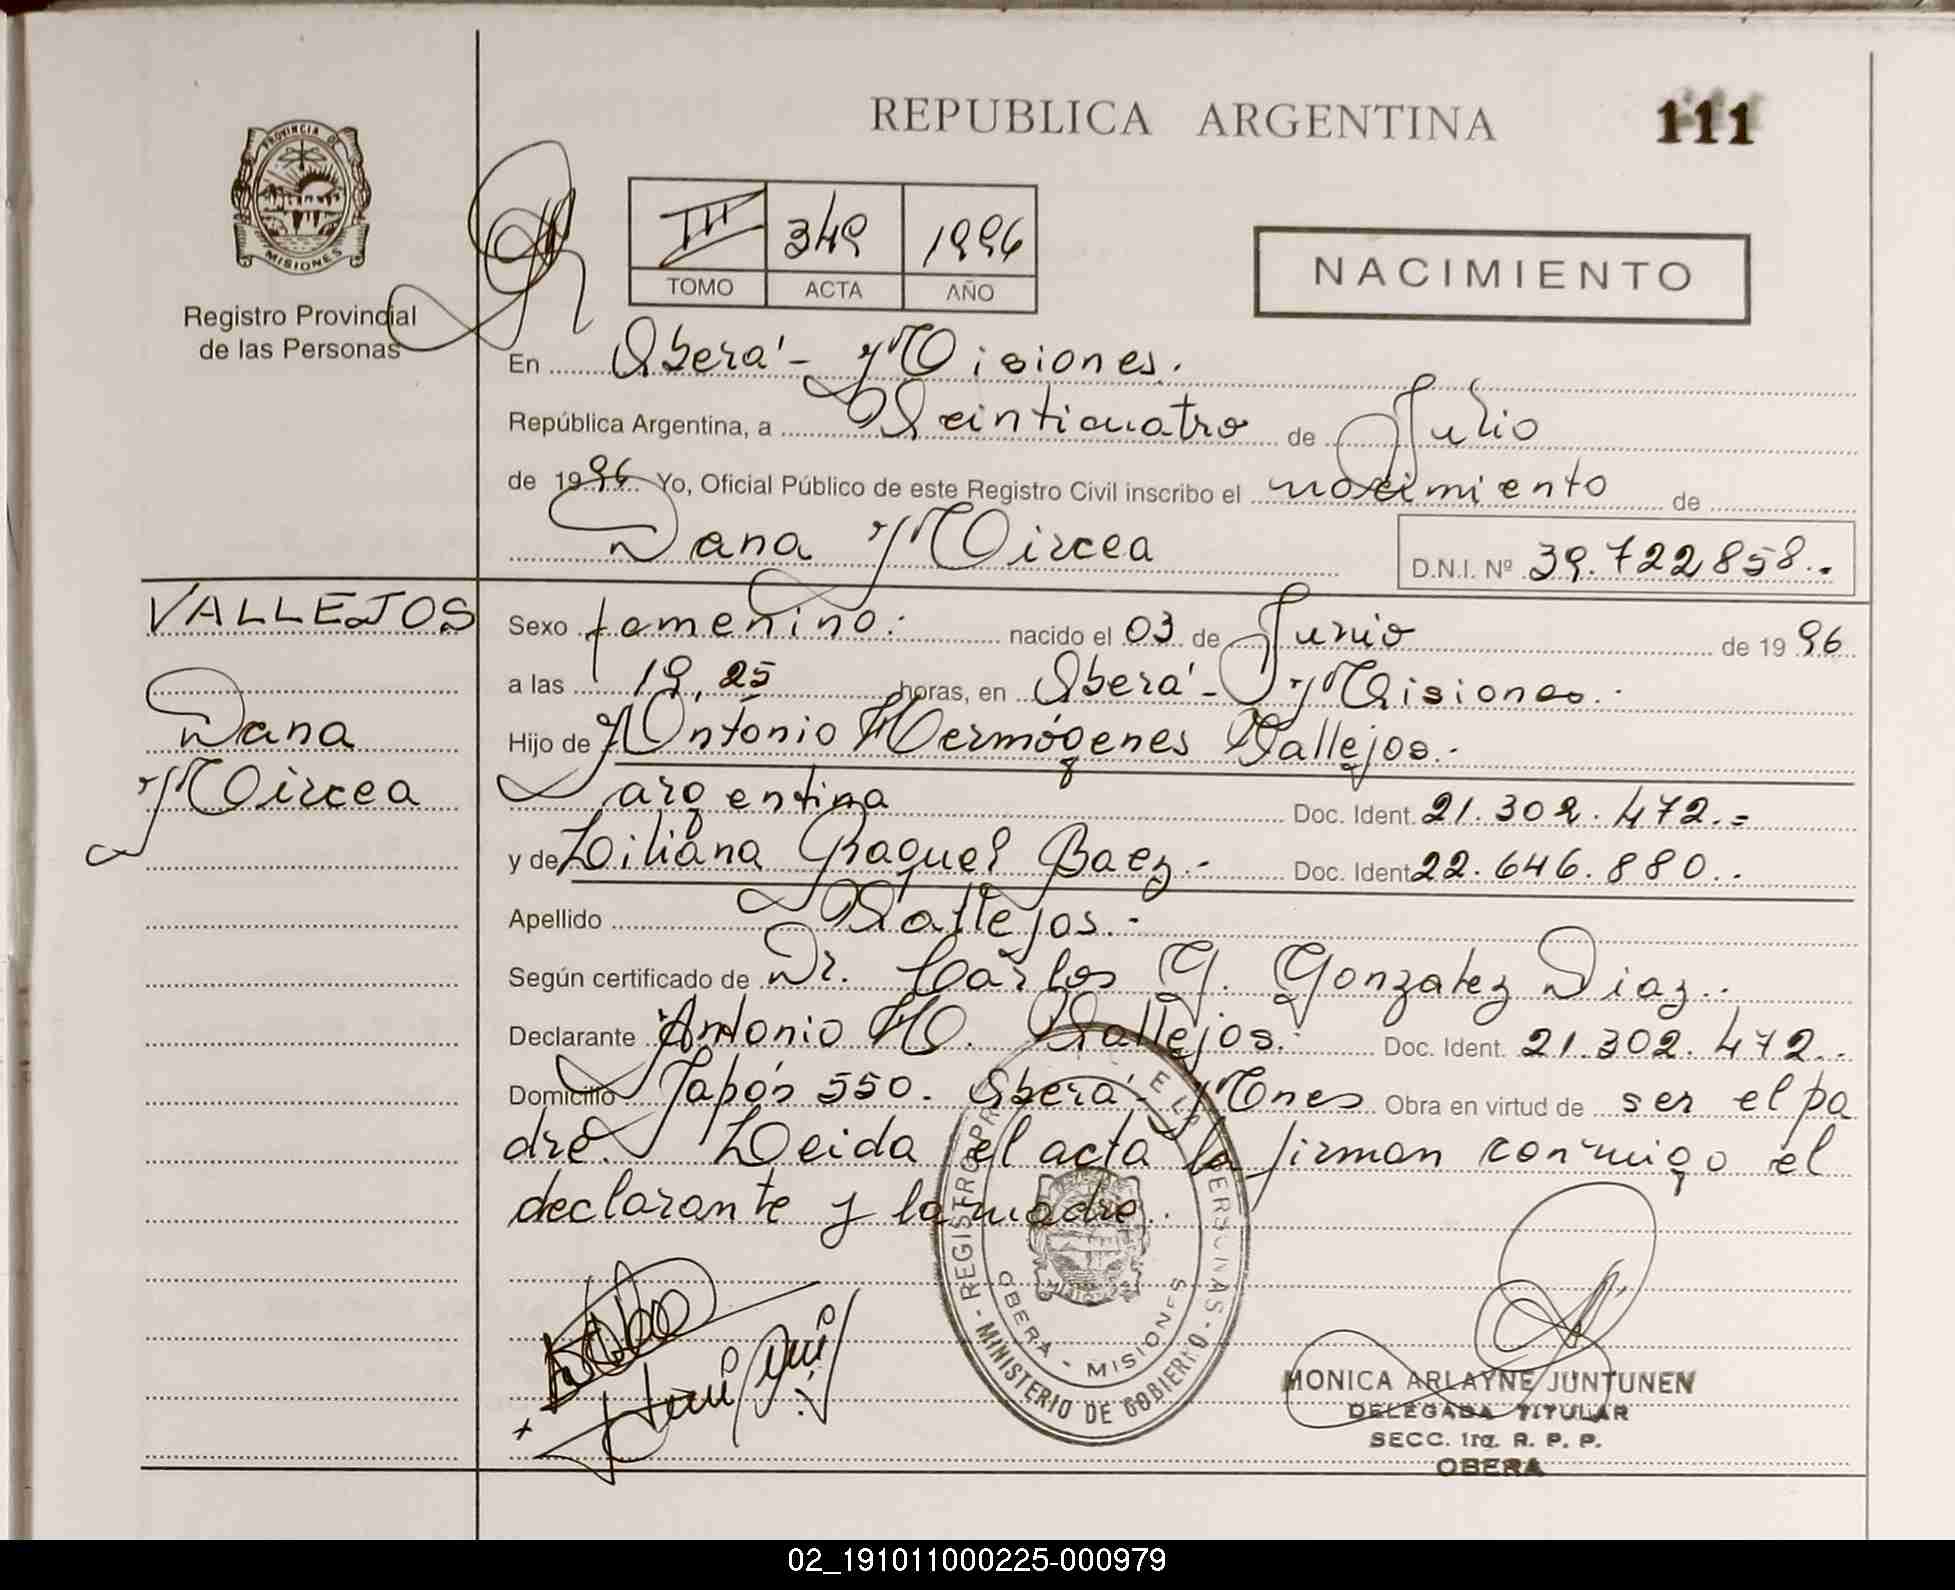 REPUBLICA ARGENTINA
111
PROVINCIA DE
MISIONES
Registro Provincial
de las Personas
III 349 1996
TOMO ACTA AÑO
NACIMIENTO
En Oberá - Misiones.
República Argentina, a Veinticuatro de Julio
de 1996 Yo, Oficial Público de este Registro Civil inscribo el nacimiento de
Dana Mircea
D.N.I. Nº 39.722858..
VALLEJOS
Dana
Mircea
Sexo femenino. nacido el 03 de Junio de 1996
a las 19,25 horas, en Oberá - Misiones.
Hijo de Antonio Hermógenes Vallejos.-
argentina Doc. Ident. 21.302.472.=
y de Liliana Raquel Baez.- Doc. Ident 22.646.880..
Apellido Vallejos.-
Según certificado de Dr. Carlos G. Gonzalez Diaz..
Declarante Antonio H. Vallejos. Doc. Ident. 21.302.472..
Domicilio Japón 550. Oberá - Mnes Obra en virtud de ser el pa
dre. Leida el acta la firman conmigo el
declarante y la madre.
REGISTRO PR E LAS PERSONAS
- MINISTERIO DE GOBIERNO -
OBERA - MISIONES
MONICA ARLAYNE JUNTUNEN
DELEGADA TITULAR
SECC. 1ra. R. P. P.
OBERA
02_191011000225-000979